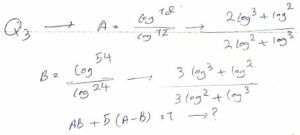 Q3 → A = log 18 / log 12 → 2 log 3 + log 2 / 2 log 2 + log 3
B = log 54 / log 24 → 3 log 3 + log 2 / 3 log 2 + log 3
AB + 5 (A - B) = ? → ?